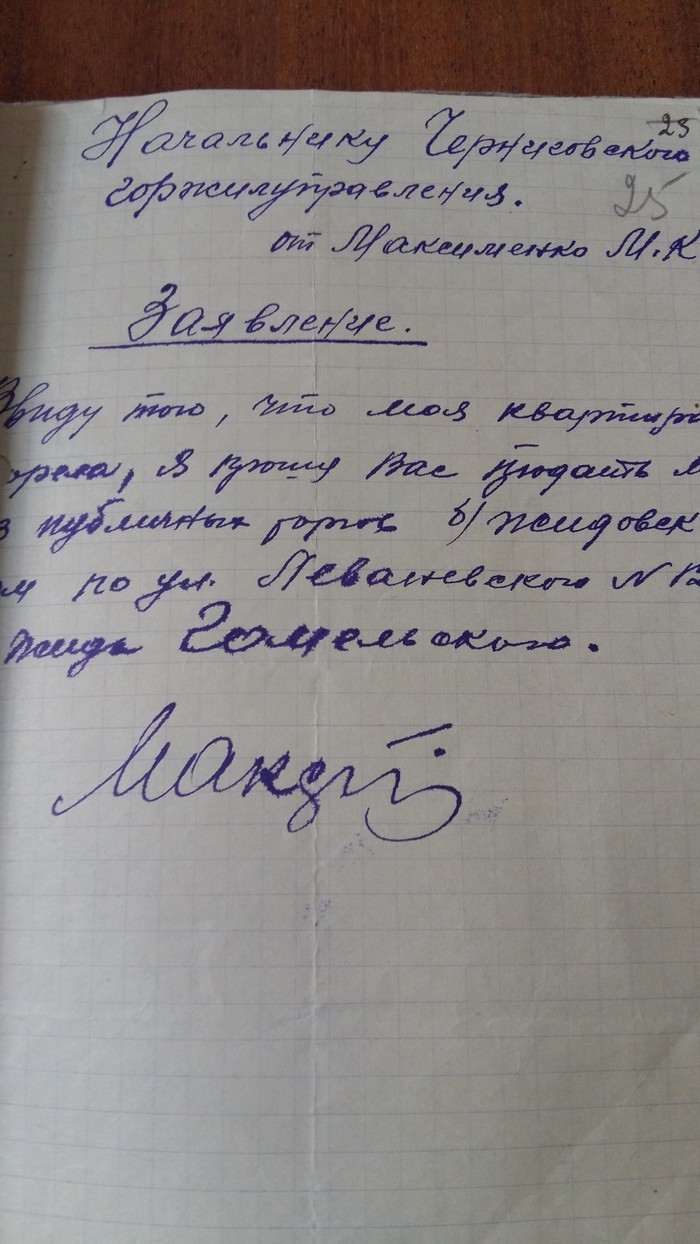 23
Начальнику Черниговского
горжилуправления.
25
от Максименко М.К
Заявление.
Ввиду того, что моя квартира
сгорела, я прошу Вас продать м
з публичных торгов б/жидовск
м по ул. Леваневского N
жида Гомельского.